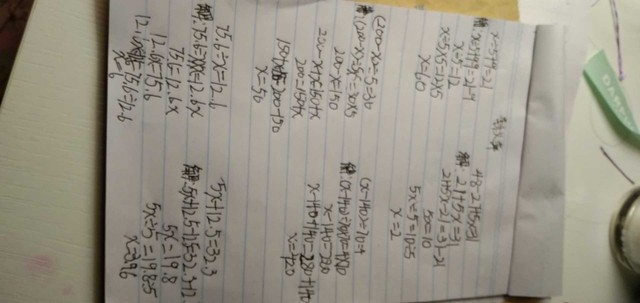 x÷5+9=21
解:x÷5+9-9=21-9
x÷5=12
x÷5×5=12×5
x=60
(200-x)÷5=30
解:(200-x)÷5×5=30×5
200-x=150
200-x+x=150+x
200=150+x
150+x-150=200-150
x=50
75.6÷x=12.6
解:75.6÷x×x=12.6x
75.6=12.6x
12.6x=75.6
x=6
48-27+5x=31
解:21+5x=31
21+5x-21=31-21
5x=10
5x÷5=10÷5
x=2
(x-140)÷70=4
解:(x-140)÷70×70=4×70
x-140=280
x-140+140=280+140
x=420
5x+12.5=32.3
解:5x+12.5-12.5=32.3-12.5
5x=19.8
5x÷5=19.8÷5
x=3.96